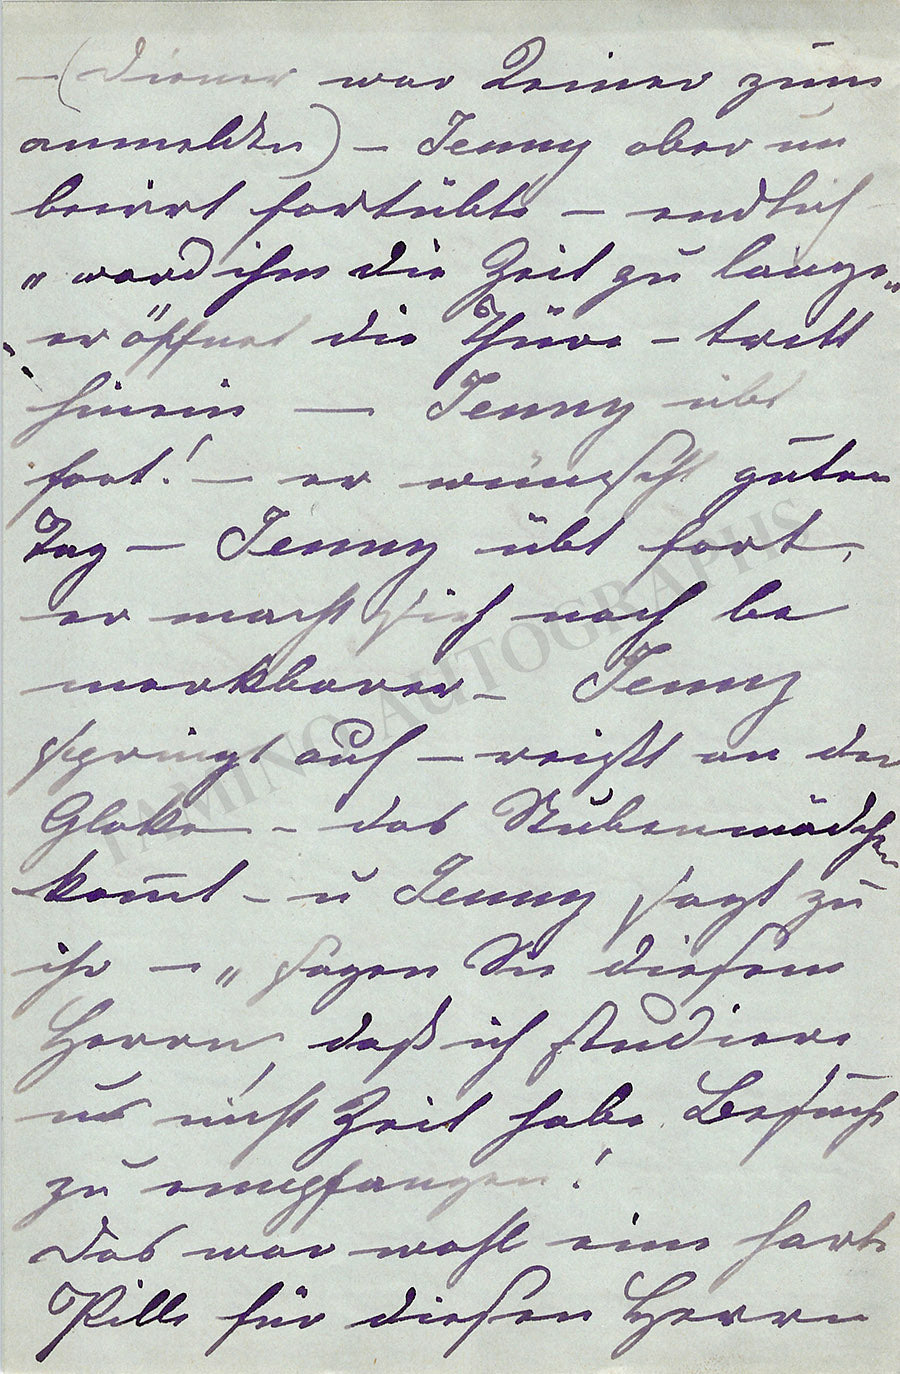 – (Diener war Keiner zum
anmelden) – Jenny aber un
beirrt fortübte – endlich
„ward ihm die Zeit zu lange"
er öffnet die Thüre – tritt
hinein — Jenny übt
fort! – er wünscht guten
Tag – Jenny übt fort,
er macht sich noch be
merkbarer – Jenny
springt auf – reißt an der
Gloke – das Stubenmädchen
kom̄t – u Jenny sagt zu
ihr – „sagen Sie diesem
Herrn, daß ich studiere
und nicht Zeit habe Besuch
zu empfangen!
Das war wohl eine harte
Pille für diesen Herrn
TAMINO AUTOGRAPHS